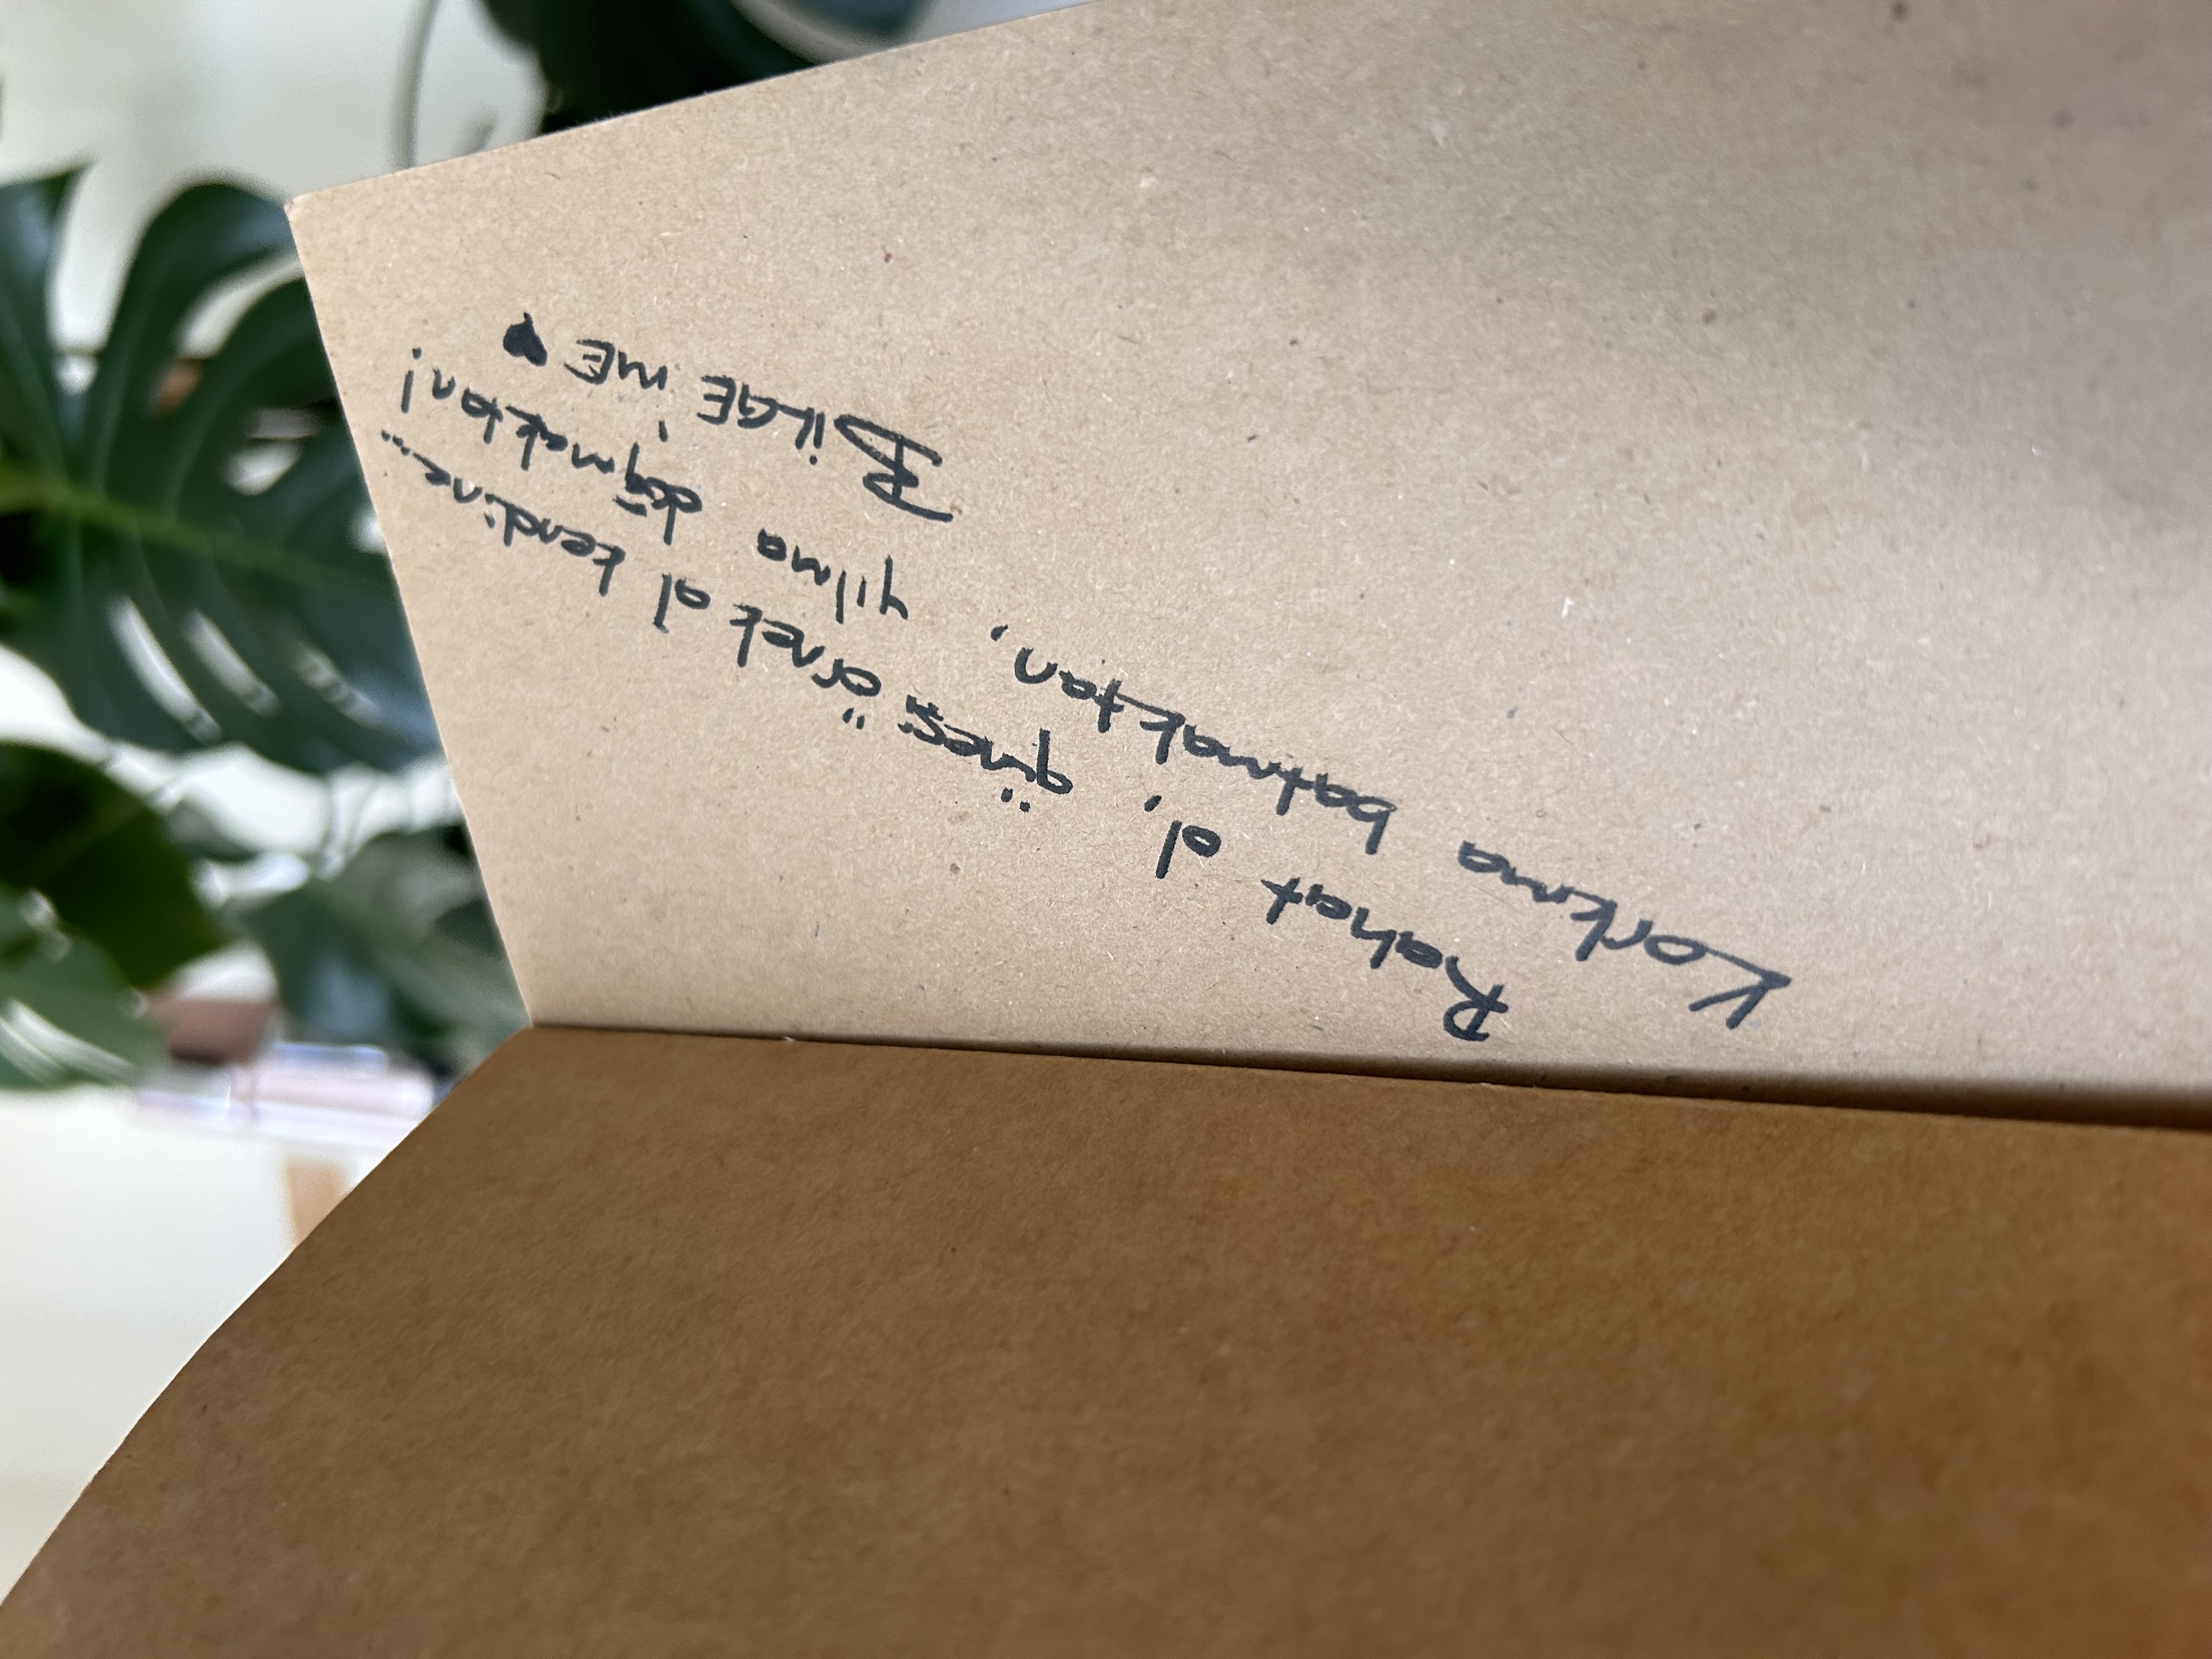 Rahat ol, güneşi örnek al kendine...
Korkma batmaktan, yılma doğmaktan!
BiLGE'ME ♥